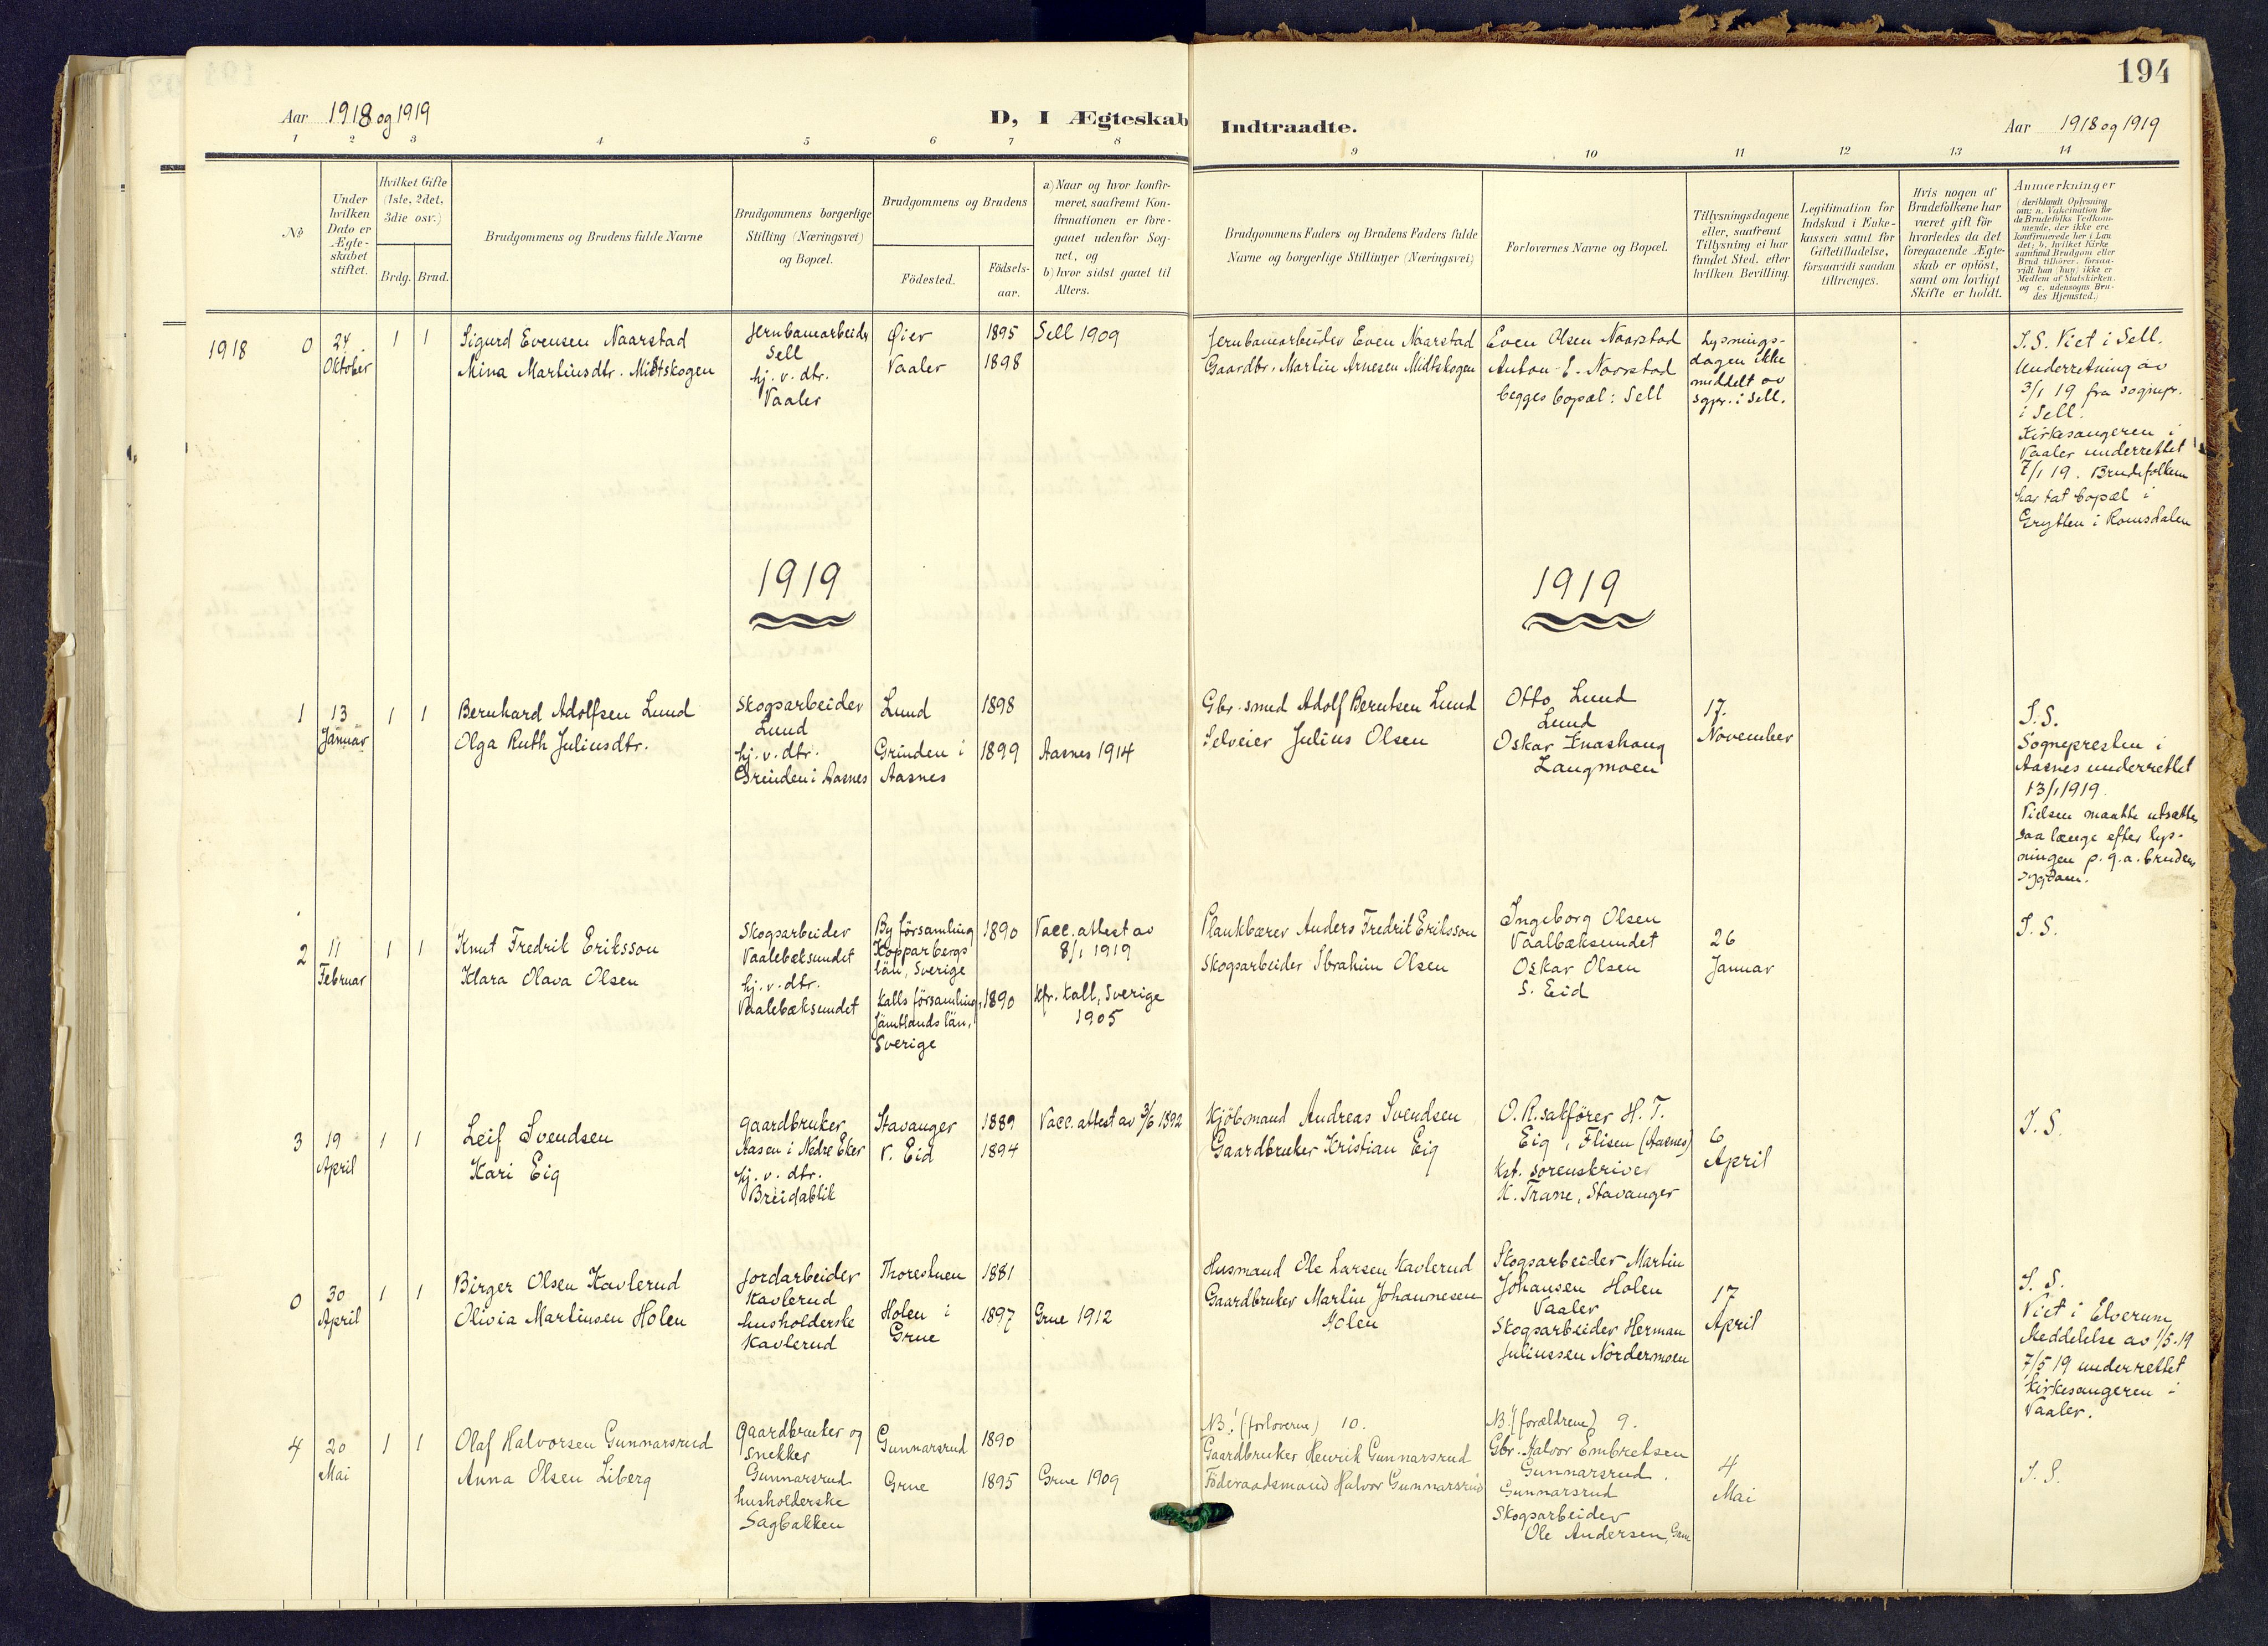 194
Aar 1918 og 1919
D, I Ægteskab Indtraadte.
Aar 1918 og 1919
1 2 3 4 5 6 7 8 9 10 11 12 13 14
No
Under hvilken Dato er Ægteskabet stiftet.
Hvilket Gifte (1ste, 2det, 3die osv.)
Brdg. Brud.
Brudgommens og Brudens fulde Navne
Brudgommens borgerlige Stilling (Næringsvei) og Bopæl.
Brudgommens og Brudens
Födested.
Födselsaar.
a) Naar og hvor konfirmeret, saafremt Konfirmationen er foregaaet udenfor Sognet, og
b) hvor sidst gaaet til Alters.
Brudgommens Faders og Brudens Faders fulde Navne og borgerlige Stillinger (Næringsvei)
Forlovernes Navne og Bopæl.
Tillysningsdagene eller, saafremt Tillysning ei har fundet Sted, efter hvilken Bevilling.
Legitimation for Indskud i Enkekassen samt for Giftetilladelse, forsaavidt saadan tiltrænges.
Hvis nogen af Brudefolkene har været gift för hvorledes da det foregaaende Ægteskab er oplöst, samt om lovligt Skifte er holdt.
Anmærkninger (deriblandt Oplysning om: a. Vakcination for de Brudefolks Vedkommende, der ikke ere konfirmerede her i Landet; b. hvilket Kirkesamfund Brudgom eller Brud tilhörer, forsaavidt han (hun) ikke er Medlem af Statskirken, og c. udensogns Brudes Hjemsted.)
1918 0
24
Oktober
1 1
Sigurd Evensen Naarstad
Mina Martinsdtr. Midtskogen
Jernbanearbeider
Sell
hj. v. dtr.
Vaaler
Øier
Vaaler
1895
1898
Sell 1909
Jernbanearbeider Even Naarstad
Gaardbr. Martin Arnesen Midtskogen
Even Olsen Naarstad
Anton E. Naarstad
begges bopæl: Sell
Lysnings-
dagen ikke
meddelt av
sgpr. i Sell.
I.S. Viet i Sell.
Underretning av
3/1 19 fra sognepr.
i Sell.
Kirkesangeren i
Vaaler underrettet
7/1 19. Brudefolkene
har tat bopæl i
Grytten i Romsdalen
1919
1919
1
13
Januar
1 1
Bernhard Adolfsen Lund
Olga Ruth Juliusdtr.
Skogsarbeider
Lund
hj. v. dtr.
Grinden i Aasnes
Lund
Grinden i
Aasnes
1898
1899
Aasnes 1914
Gbr. smed Adolf Berntsen Lund
Selveier Julius Olsen
Otto Lund
Lund
Oskar Knashaug
Langmoen
17.
November
I.S.
Sognepresten i
Aasnes underrettet
13/1 1919.
Vielsen maatte utsættes
saa længe efter lys-
ningen p. g. a. brudens
sygdom.
2
11
Februar
1 1
Knut Fredrik Eriksson
Klara Olava Olsen
Skogsarbeider
Vaalebæksundet
hj. v. dtr.
Vaalebæksundet
By församling
Kopparbergs
län, Sverige
Kalls församling,
Jämtlands län,
Sverige
1890
1890
Vacc. attest av
8/1 1919
Kfr. Kall, Sverige
1905
Plankbærer Anders Fredrik Eriksson
Skogsarbeider Ibrahim Olsen
Ingeborg Olsen
Vaalbæksundet
Oskar Olsen
S. Eid
26
Januar
I.S.
3
19
April
1 1
Leif Svendsen
Kari Eig
Gaardbruker
Aasen i Nedre Eker
hj. v. dtr.
Breidablik
Stavanger
V. Eid
1889
1894
Vacc. attest av 3/6 1892
Kjöbmand Andreas Svendsen
Gaardbruker Kristian Eig
O.R.sakförer H. T.
Eig, Flisen (Aasnes)
Kst. sorenskriver
K. Trane, Stavanger
6
April
I.S.
0
30
April
1 1
Birger Olsen Kavlerud
Olivia Martinsen Holen
Jordarbeider
Kavlerud
husholderske
Kavlerud
Thorestuen
Holen i
Grue
1881
1897
Grue 1912
Husmand Ole Larsen Kavlerud
Gaardbruker Martin Johannesen
Holen
Skogsarbeider Martin
Johansen Holen
Vaaler
Skogsarbeider Herman
Juliussen Nordermoen
17
April
I.S.
Viet i Elverum
Meddelelse av 1/5-19
7/5 19 underrettet
kirkesangeren i
Vaaler.
4
20
Mai
1 1
Olaf Halvorsen Gunnarsrud
Anna Olsen Liberg
Gaardbruker og
snekker
Gunnarsrud
husholderske
Sagbakken
Gunnarsrud
Grue
1890
1895
Grue 1909
NB! (forloverne) 10.
Gaardbruker Henrik Gunnarsrud
Föderaadsmand Halvor Gunnarsrud
NB! (forældrene) 9.
Gbr. Halvor Embretsen
Gunnarsrud.
Gunnarsrud
Skogsarbeider
Ole Andersen,
4
Mai
I.S.